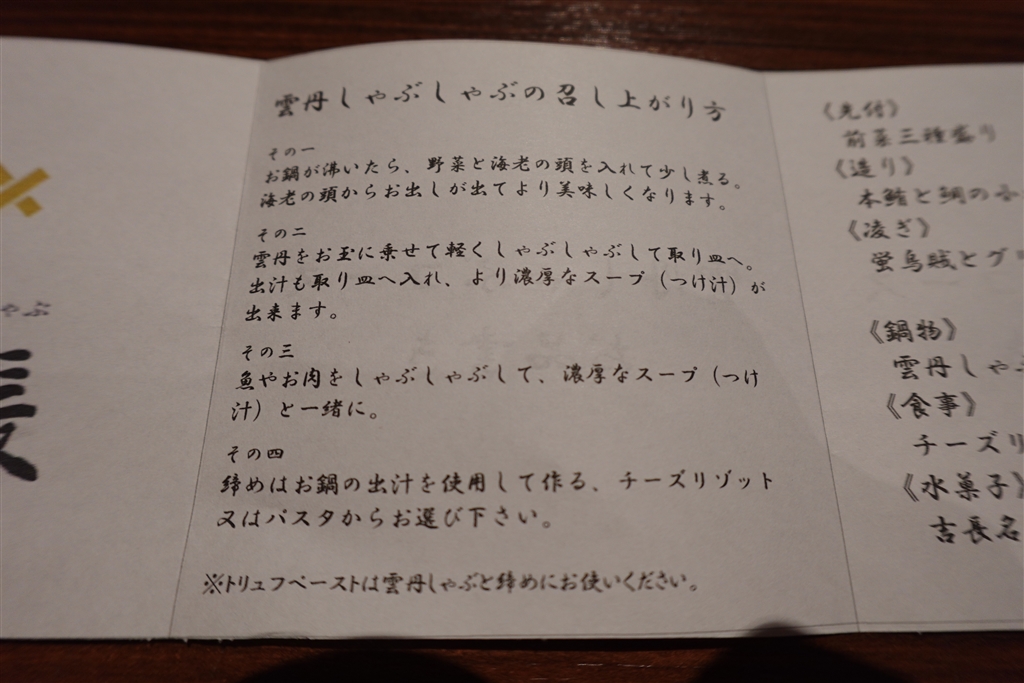 雲丹しゃぶしゃぶの召し上がり方
その一
お鍋が沸いたら、野菜と海老の頭を入れて少し煮る。
海老の頭からお出しが出てより美味しくなります。
その二
雲丹をお玉に乗せて軽くしゃぶしゃぶして取り皿へ。
出汁も取り皿へ入れ、より濃厚なスープ（つけ汁）が
出来ます。
その三
魚やお肉をしゃぶしゃぶして、濃厚なスープ（つけ
汁）と一緒に。
その四
締めはお鍋の出汁を使用して作る、チーズリゾット
又はパスタからお選び下さい。
※トリュフペーストは雲丹しゃぶと締めにお使いください。
《先付》
前菜三種盛り
《造り》
本鮪と鯛の
《凌ぎ》
蛍烏賊とグ
《鍋物》
雲丹しゃぶ
《食事》
チーズリ
《水菓子》
吉長名
ゃぶ